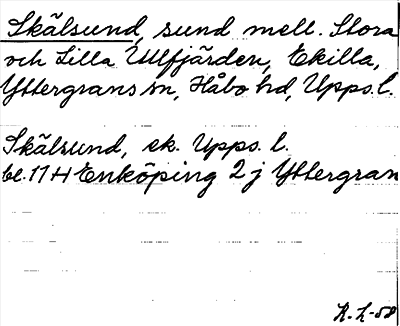 Skälsund, sund mell. Stora
och Lilla Ullfjärden, Ekilla,
Yttergrans sn, Håbo hd, Upps. l.
Skälsund, ek. Upps. l.
bl. 11 H Enköping 2 j Yttergran
K. L-58